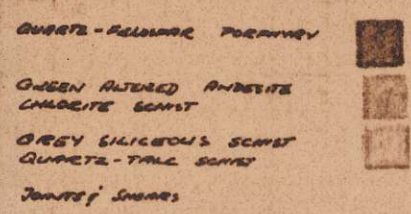 QUARTZ-FELDSPAR PORPHYRY
GREEN ALTERED ANDESITE
CHLORITE SCHIST
GREY SILICEOUS SCHIST
QUARTZ-TALC SCHIST
JOINTS & SHEARS